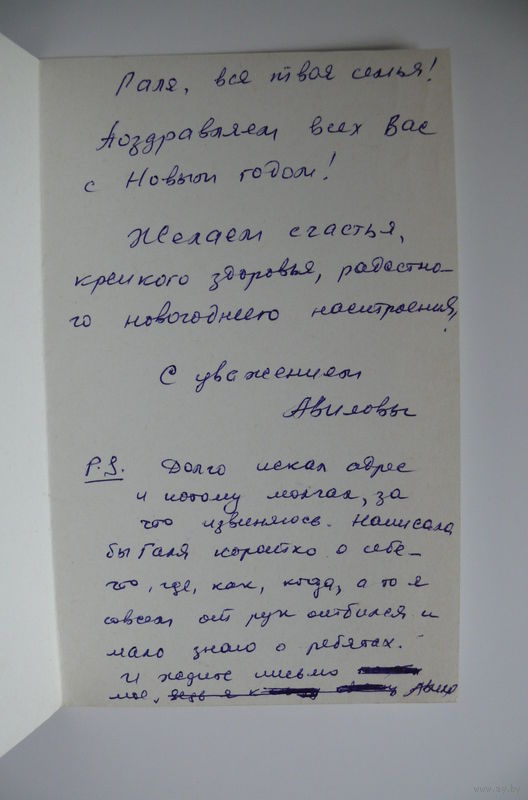 Галя, вся твоя семья!
Поздравляем всех Вас
с Новым годом!
Желаем счастья,
крепкого здоровья, радостно-
го новогоднего настроения,
С уважением
Авиловы
P.S. Долго искал адрес
и потому молчал, за
что извиняюсь. Написала
бы Галя коротко о себе-
что, где, как, когда, а то я
совсем от рук отбился и
мало знаю о ребятах.
И ждите письмо
мое, Авило
www.ay.by